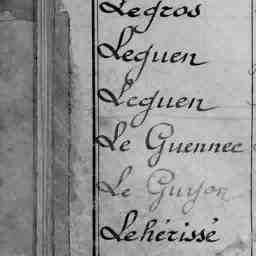 Legros
Leguen
Leguen
Le Guennec
Le Guyon
Lehérissé